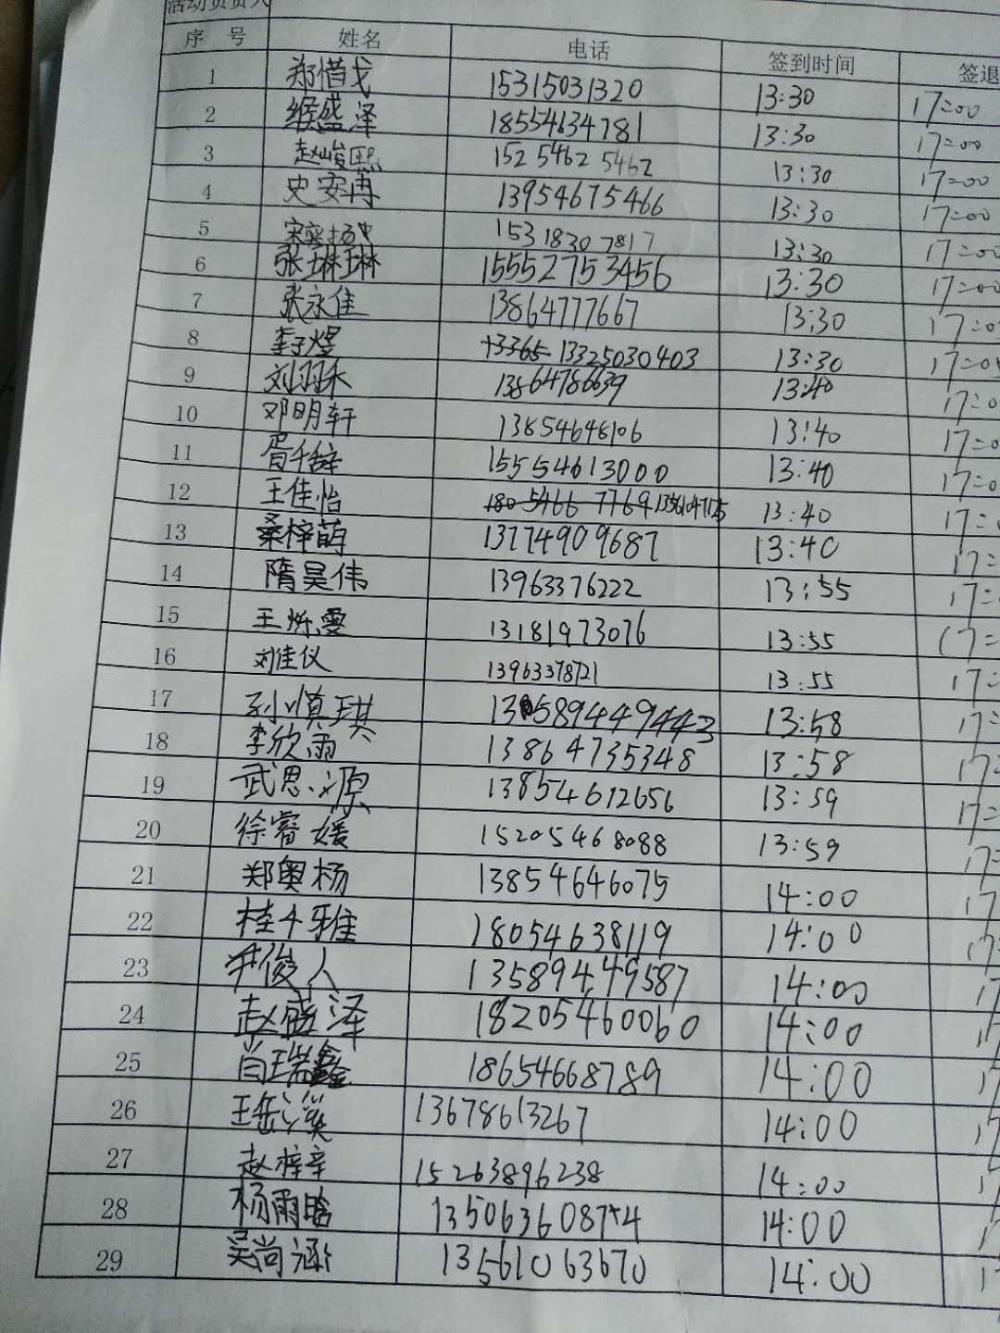 活动负责人
序 号 姓名 电话 签到时间 签退
1 郑惜戈 15315031320 13:30 17:00
2 缑盛泽 18554634781 13:30 17:00
3 赵峻熙 152 5462 5462 13:30 17:00
4 史安冉 13954675466 13:30 17:00
5 1531830 7817 13:30 17:00
6 张琳琳 15552753456 13:30 17:00
7 张永佳 13864777667 13:30 17:0
8 李子煜 13325030403 13:30 17:0
9 刘羽禾 13864786639 13:40 17:0
10 邓明轩 13854648106 13:40 17:0
11 胥千辞 15554613000 13:40 17:0
12 王佳怡 180 5466 7769 13:40 17:
13 桑梓萌 13774909687 13:40 17:
14 隋昊伟 13963376222 13:55 17:
15 王烁雯 13181973076 13:55 17:
16 刘佳仪 13963378721 13:55 17:
17 孙慎琪 13589449443 13:58 17:
18 李欣雨 13864735348 13:58 17:
19 武思源 13854612656 13:59 17:
20 徐睿媛 15205468088 13:59 17:
21 郑奥杨 13854646075 14:00 17
22 桂千雅 18054638119 14:00 17:
23 尹俊人 13589449587 14:00 17
24 赵盛泽 18205460060 14:00 17
25 肖瑞鑫 18654668789 14:00 17
26 王岳溪 13678613267 14:00 17
27 赵梓辛 15263896238 14:00 1
28 杨雨晗 13506360874 14:00 1
29 吴尚涵 13561063670 14:00 1